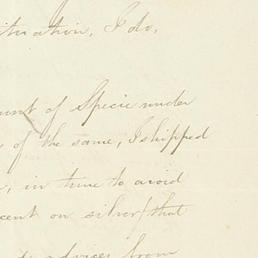 situation, I do,
amount of Specie under
of the same, I shipped
, in time to avoid
cent on silver/that
advices from